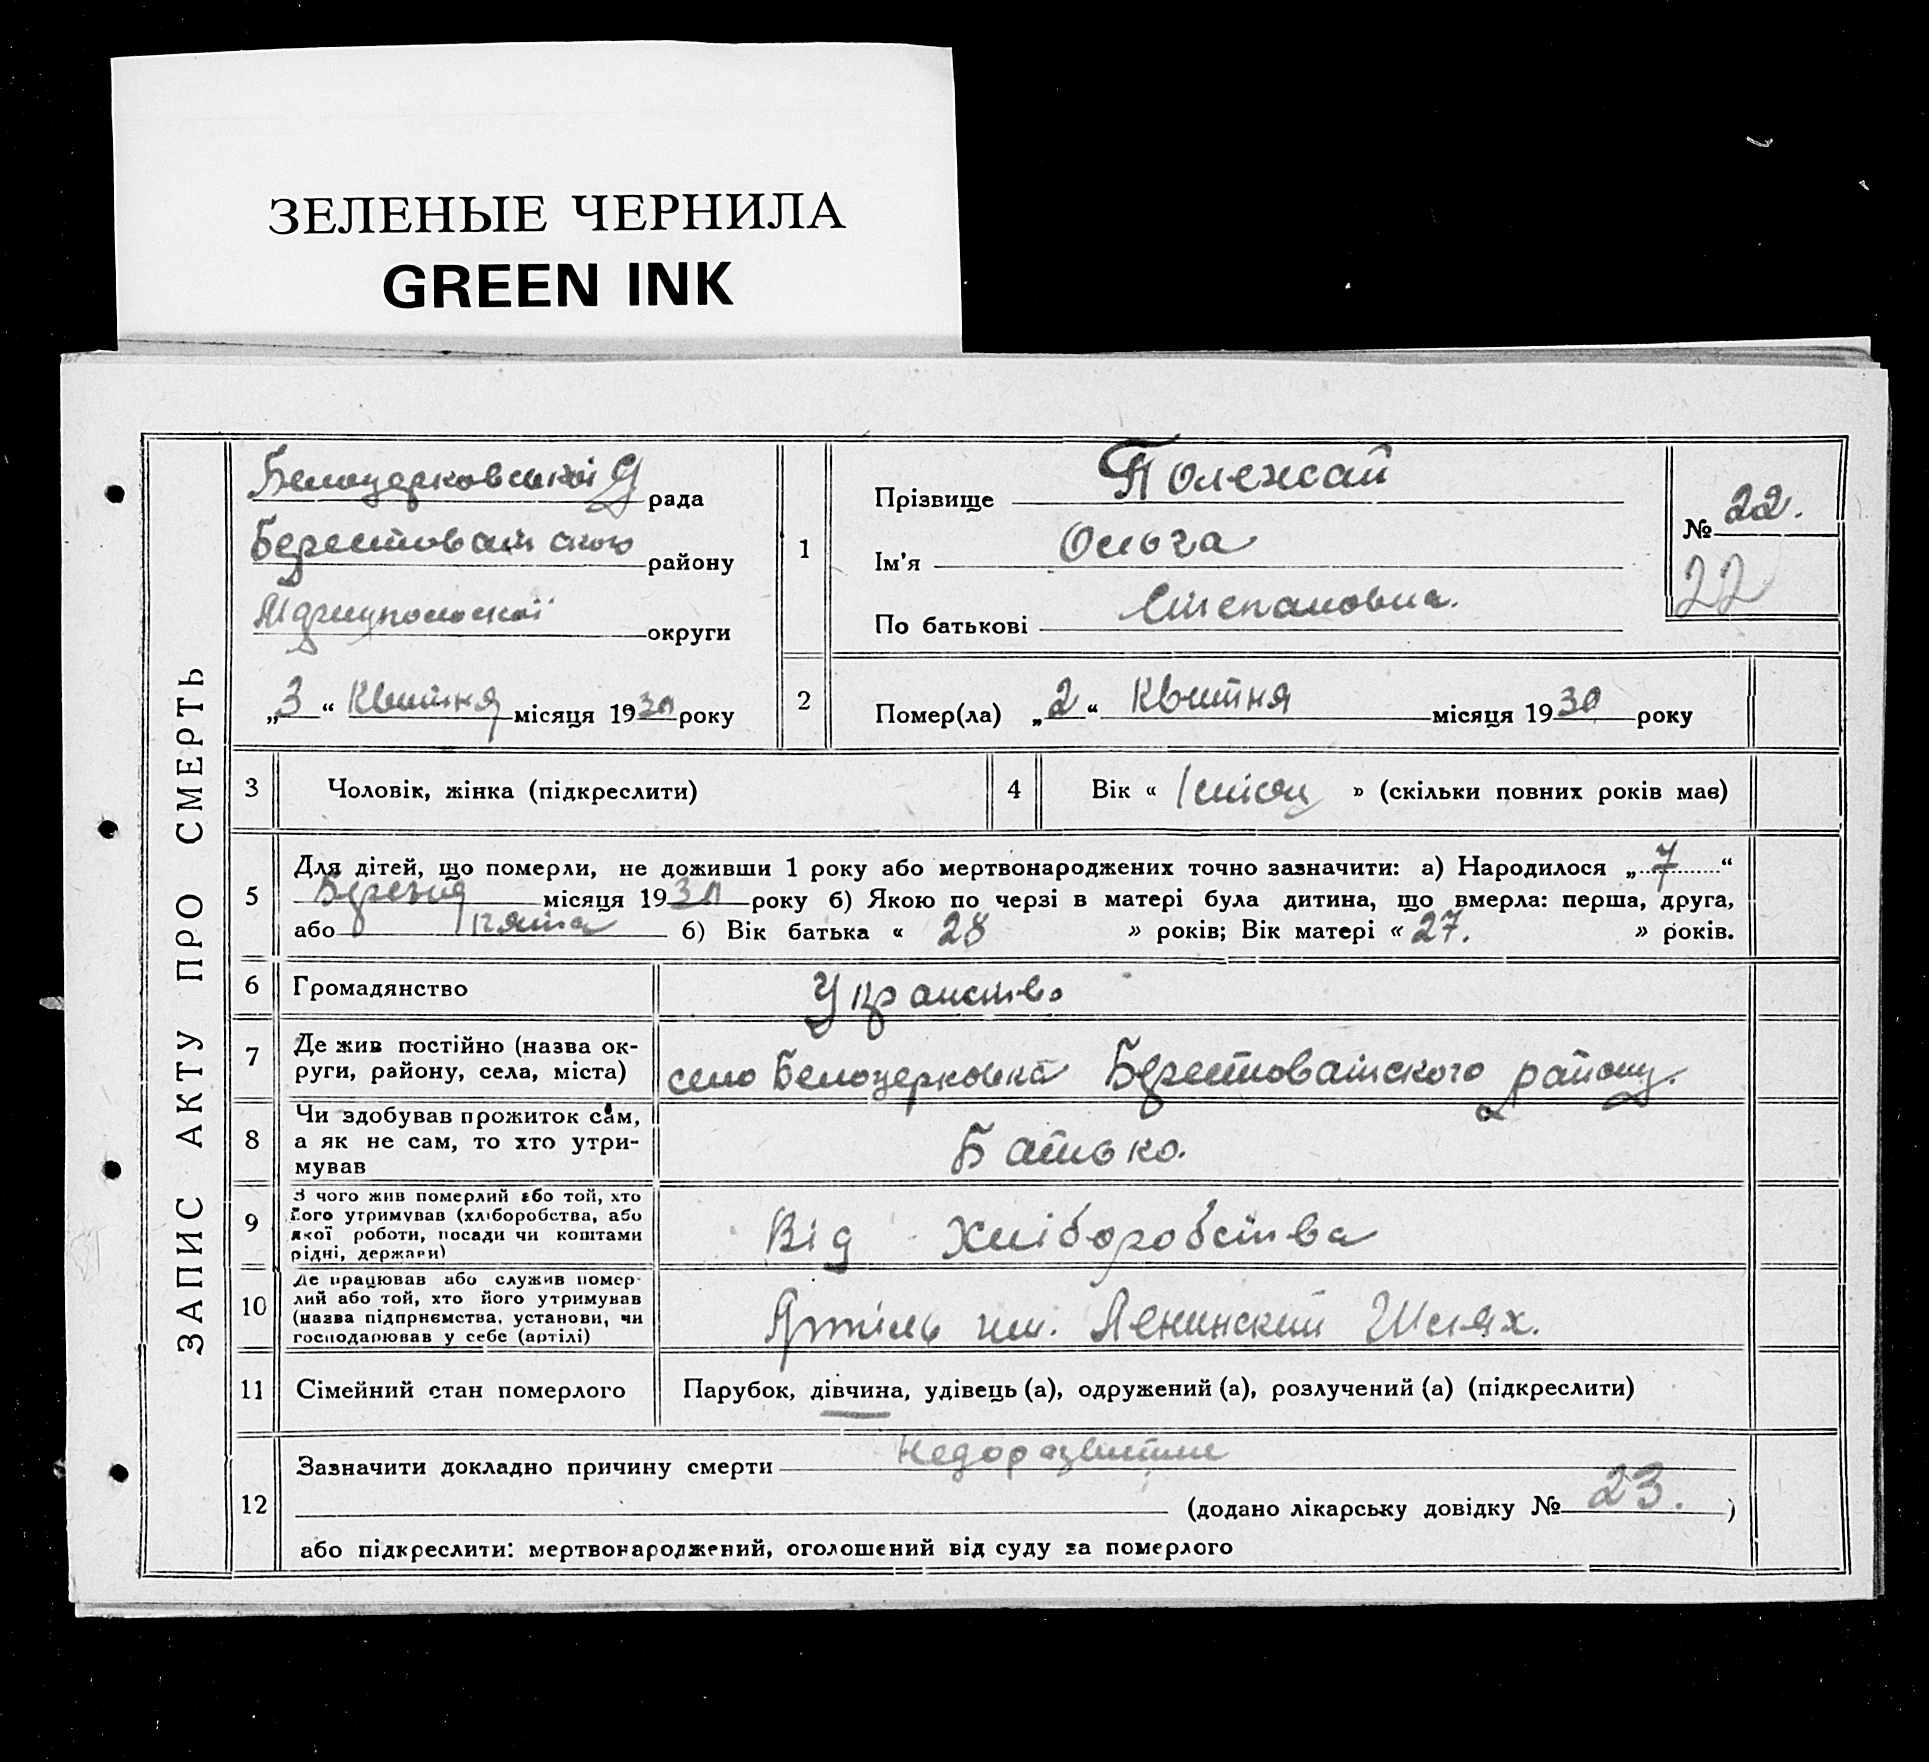 ЗЕЛЕНЫЕ ЧЕРНИЛА
GREEN INK
ЗАПИС АКТУ ПРО СМЕРТЬ
Белоцерковської рада
Берестоватського району
Маріупольської округи
„3“ Квитня місяця 1930 року
1
Прізвище Полежай
Ім'я Ольга
По батькові Степановна.
№ 22.
22
2
Помер(ла) „2“ Квитня місяця 1930 року
3 Чоловік, жінка (підкреслити)
4 Вік « 1 місяц » (скільки повних років має)
5
Для дітей, що померли, не доживши 1 року або мертвонароджених точно зазначити: а) Народилося „7“
Березня місяця 1930 року б) Якою по черзі в матері була дитина, що вмерла: перша, друга,
або пята б) Вік батька « 28 » років; Вік матері « 27. » років.
6 Громадянство
7 Де жив постійно (назва ок-
руги, району, села, міста) село Белоцерковка Берестоватського району.
8 Чи здобував прожиток сам,
а як не сам, то хто утри-
мував Батько.
9 З чого жив померлий або той, хто
його утримував (хліборобства, або
якої роботи, посади чи коштами
рідні, держави) Від Хліборобства
10 Де працював або служив помер-
лий або той, хто його утримував
(назва підприємства, установи, чи
господарював у себе (артілі) Артіль им. Ленинский Шлях.
11 Сімейний стан померлого Парубок, дівчина, удівець (а), одружений (а), розлучений (а) (підкреслити)
12
Зазначити докладно причину смерти Недоразвитие
(додано лікарську довідку № 23. )
або підкреслити: мертвонароджений, оголошений від суду за померлого